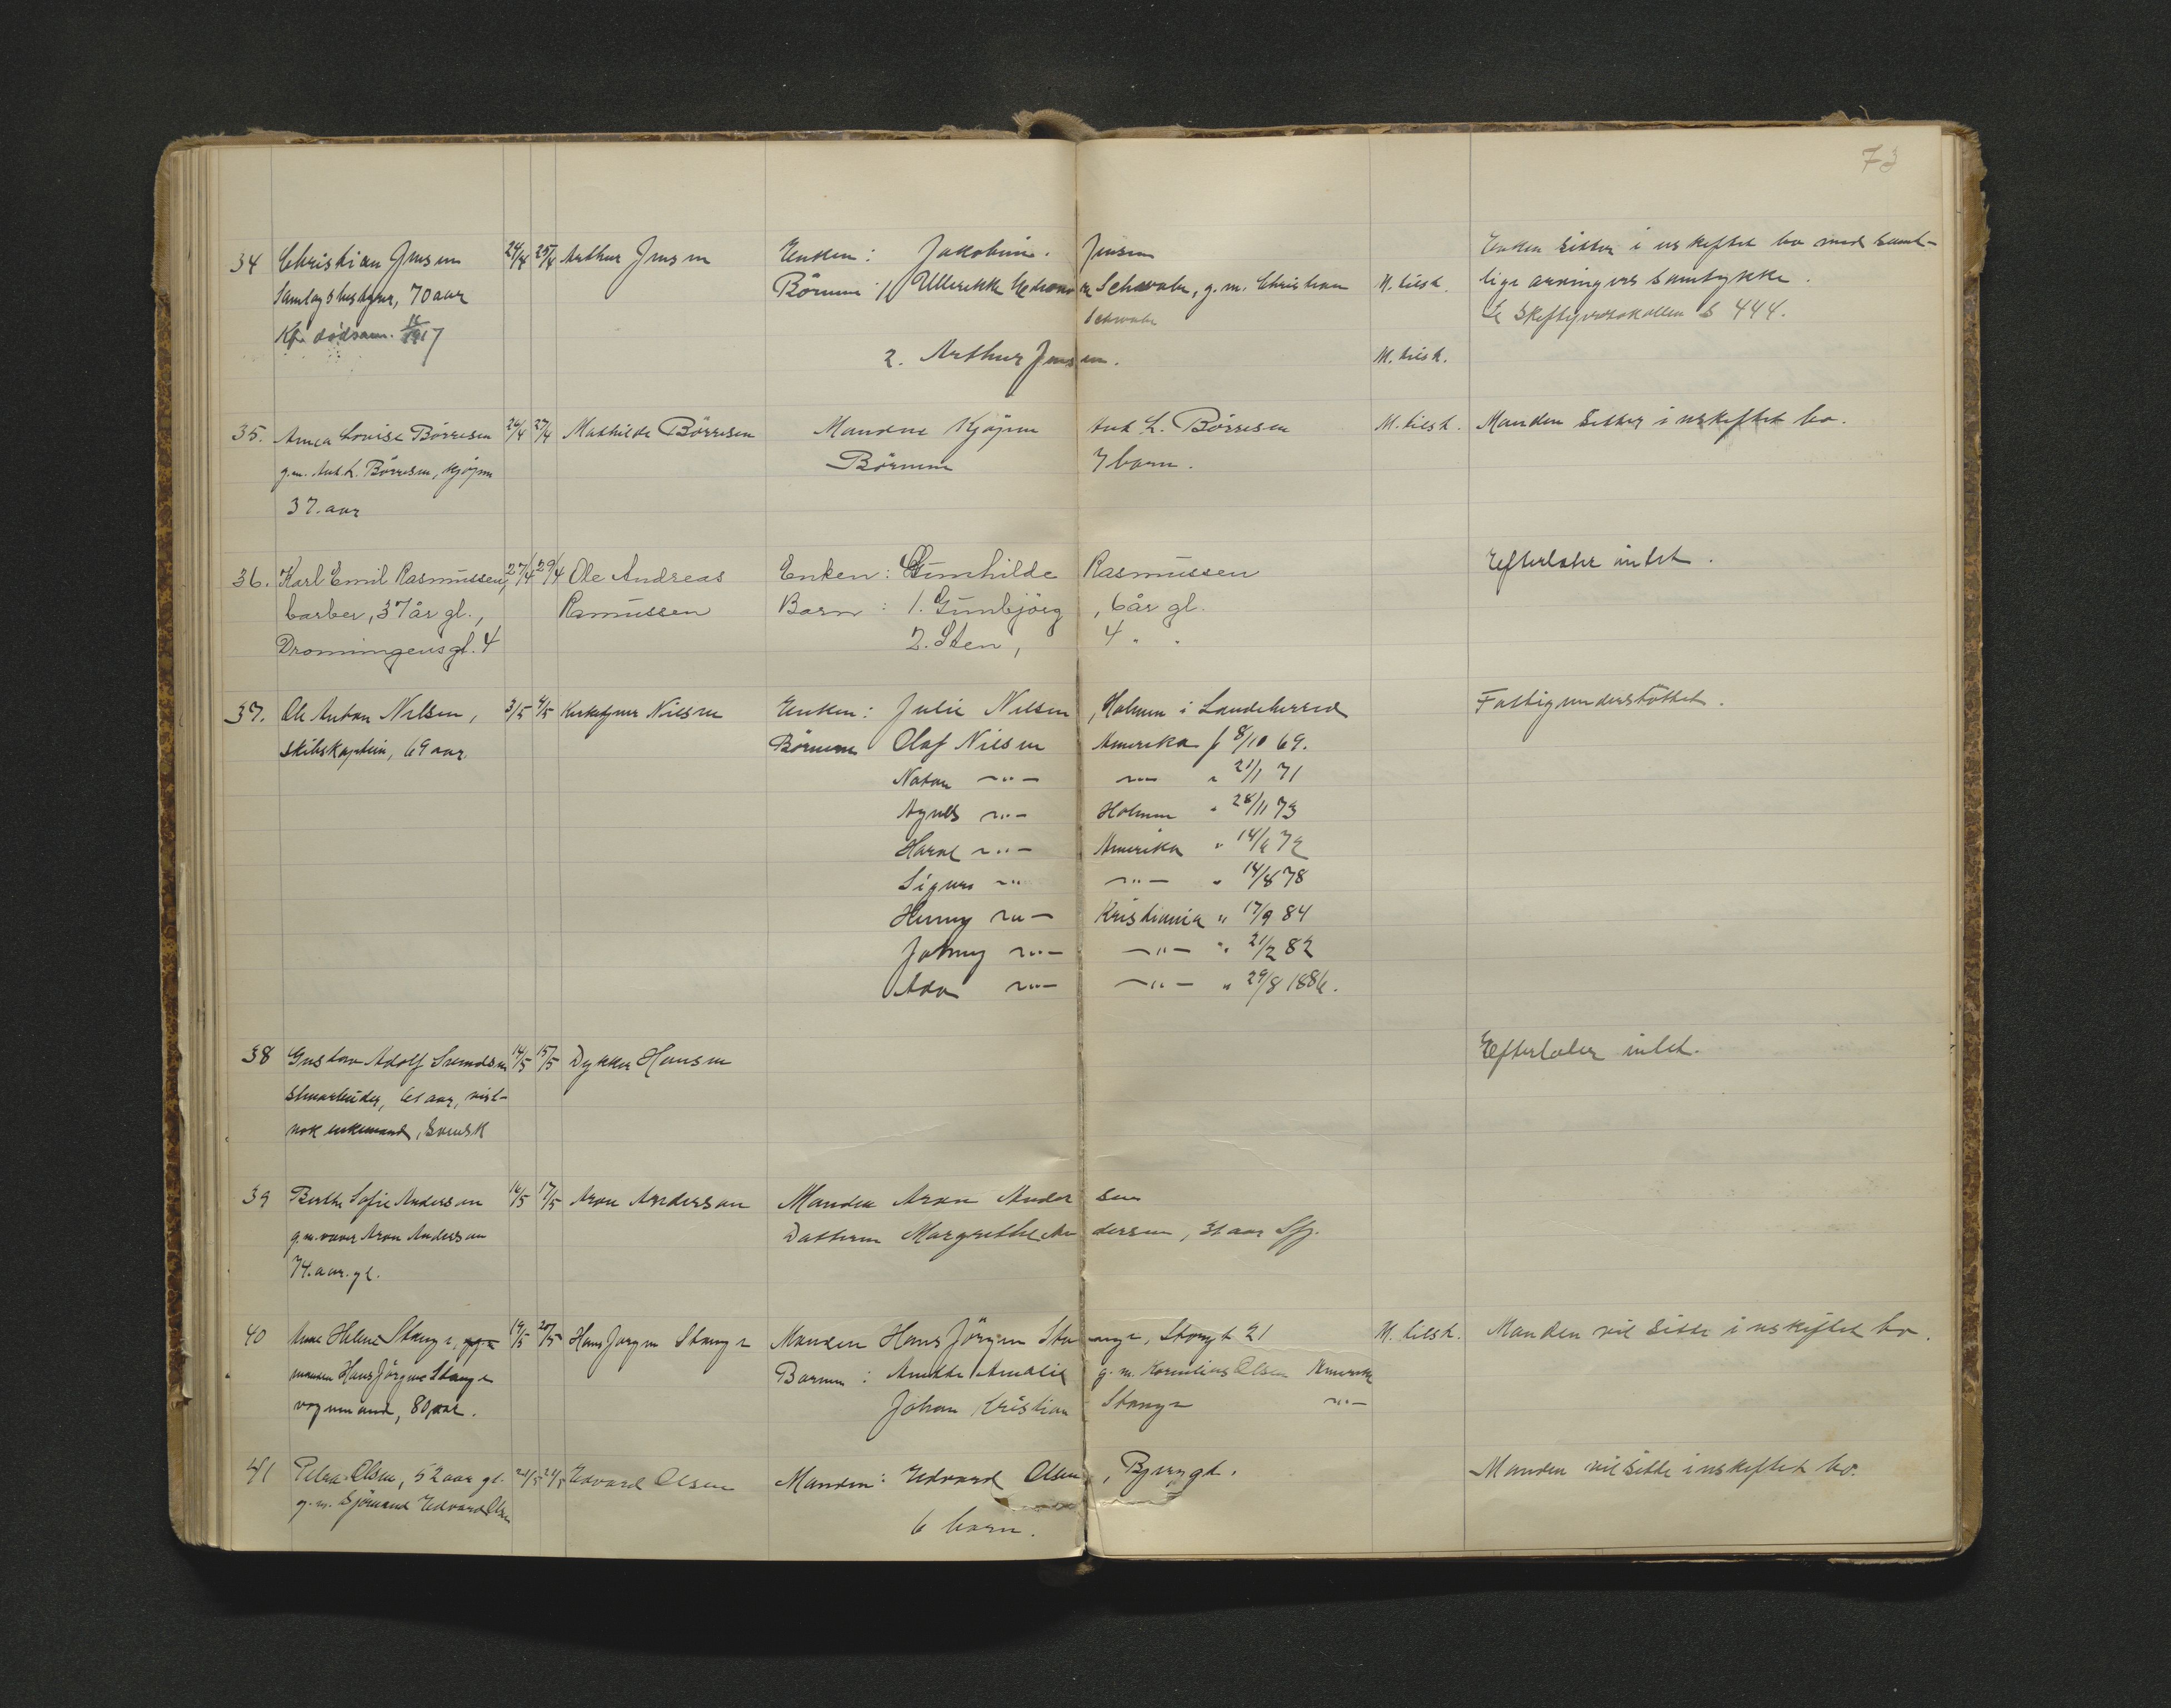 73
34 Christian Jensen 24/4 25/4 Arthur Jensen Enken: Jakobine Jensen Enken sitter i uskiftet bo med samt-
samlagsbestyrer, 70 aar Börnene: 1, Ullerikke Schwabe, g.m. Christian M. tilst. lige arvingers samtykke.
Kfr. dödsanm. 1917 Schwabe Se Skifteprotokollen S 444.
2. Arthur Jensen. M. tilst.
35. Anna Lovise Börresen 26/4 27/4 Mathilde Börresen Manden Kjöpm Ant L. Börresen M. tilst. Manden sitter i uskiftet bo.
g.m. Ant. L. Börresen, Kjöpm Börnene 7 barn.
37. aar
36. Karl Emil Rasmussen, 27/4 29/4 Ole Andreas Enken: Gunhilde Rasmussen Efterlater intet.
barber, 37 år gl., Rasmussen Barn: 1. Gunbjörg, 6 år gl.
Dronningensgt. 4 2. Sten, 4 " "
37. Ole Anton Nilsen, 3/5 4/5 Kirketjener Nilsen Enken: Julie Nilsen, Holmen i Landeherred Fattigunderstöttet.
skibskaptein, 69 aar. Börnene Olaf Nilsen Amerika f 8/10 69.
Natan —"— —"— " 21/1 71
Agnes —"— Holmen " 28/11 73
Haral —"— Amerika " 14/6 72
Sigurd —"— —"— " 14/8 78
Henny —"— Kristiania " 17/9 84
Johny —"— —"— " 21/2 82
Ada —"— —"— " 29/8 1886.
38 Gustav Adolf Svendsen 14/5 15/5 Dykker Hansen Efterlater intet.
stenarbeider, 61 aar, vist-
nok enkemand, svensk
39 Berthe Sofie Anderson 16/5 17/5 Aron Anderson Manden Aron Andersen
g.m. Aron Anderson Datteren Margrethe Andersen, 31 aar
74. aar. gl.
40 Anne Helene Stange, 19/5 20/5 Hans Jorgen Stange Manden Hans Jörgen Stange, Storgt 21 M. tilst. Manden vil sitte i uskiftet bo.
manden Hans Jörgen Stange Barnene: Amalie g.m. Kornelius Olsen Amerika
vognmand, 80 aar. Johan Kristian Stange —"—
41 Petra Olsen, 52 aar gl. 24/5 Edvard Olsen Manden: Edvard Olsen, Manden vil sitte i uskiftet bo.
g.m. Sjömand Edvard Olsen
6 barn.